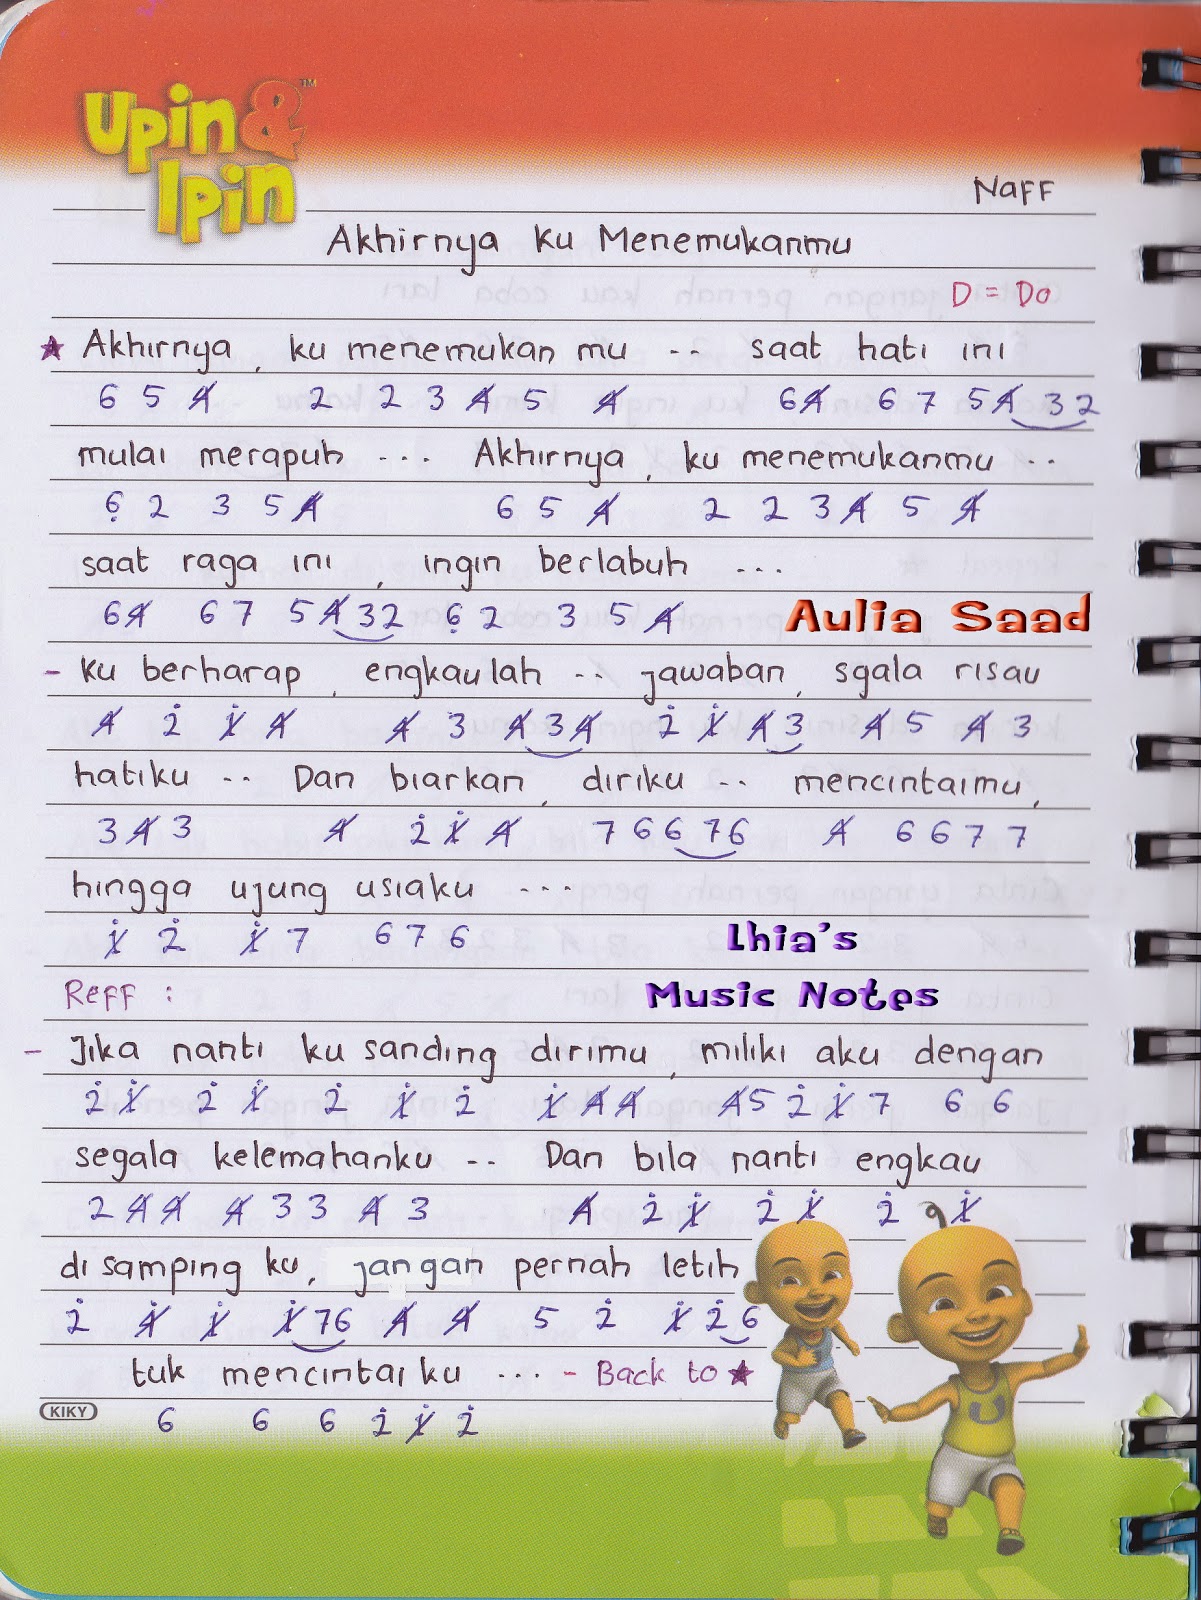 Upin & Ipin™
Naff
Akhirnya Ku Menemukanmu
D = Do
★ Akhirnya, ku menemukan mu -- saat hati ini
6 5 4̸ 2 2 3 4̸ 5 4̸ 6 4̸ 6 7 5 4̸ 3 2
mulai merapuh --- Akhirnya, ku menemukanmu --
6̣ 2 3 5 4̸ 6 5 4̸ 2 2 3 4̸ 5 4̸
saat raga ini, ingin berlabuh ---
6 4̸ 6 7 5 4̸ 3 2 6̣ 2 3 5 4̸
Aulia Saad
- ku berharap, engkaulah -- jawaban, sgala risau
4̸ 2̇ 1̸̇ 4̸ 4̸ 3 4̸ 3 4̸ 2̇ 1̸̇ 4̸ 3 4̸ 5 4̸ 3
hatiku -- Dan biarkan, diriku -- mencintaimu,
3 4̸ 3 4̸ 2̇ 1̸̇ 4̸ 7 6 6 7 6 4̸ 6 6 7 7
hingga ujung usiaku ---
1̸̇ 2̇ 1̸̇ 7 6 7 6
Lhia's
Music Notes
Reff :
- Jika nanti ku sanding dirimu, miliki aku dengan
2̇ 1̸̇ 2̇ 1̸̇ 2̇ 1̸̇ 2̇ 1̸̇ 4̸ 4̸ 4̸ 5 2̇ 1̸̇ 7 6 6
segala kelemahanku -- Dan bila nanti engkau
2 4̸ 4̸ 4̸ 3 3 4̸ 3 4̸ 2̇ 1̸̇ 2̇ 1̸̇ 2̇ 1̸̇
di samping ku, jangan pernah letih
2̇ 1̸̇ 1̸̇ 1̸̇ 7 6 4̸ 4̸ 5 2̇ 1̸̇ 2̇ 6
tuk mencintai ku --- - Back to ★
6 6 6 2̇ 1̸̇ 2̇
KIKY
U